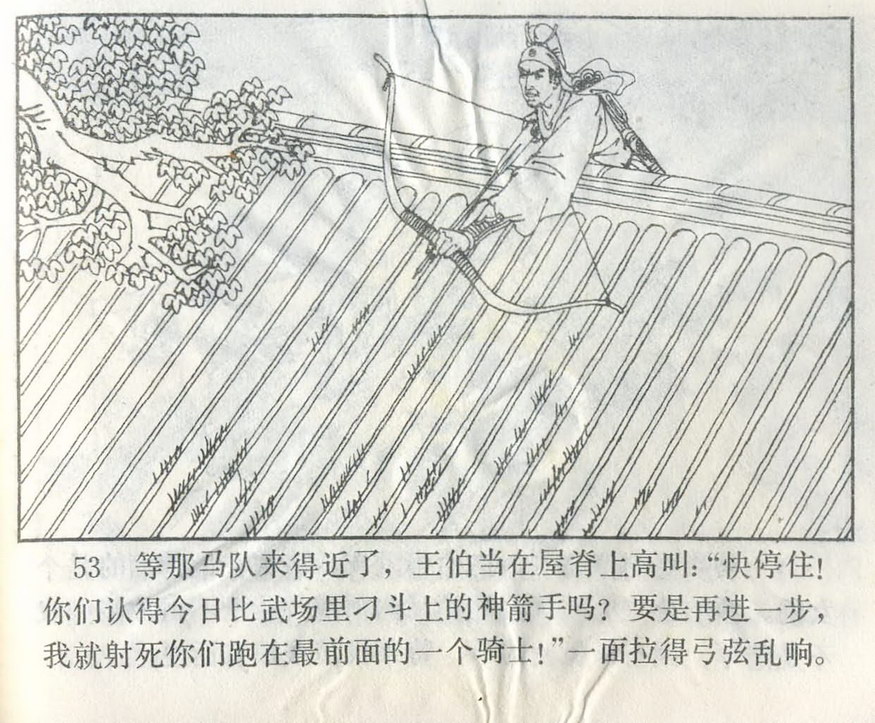 53 等那马队来得近了，王伯当在屋脊上高叫：“快停住！
你们认得今日比武场里刁斗上的神箭手吗？要是再进一步，
我就射死你们跑在最前面的一个骑士！”一面拉得弓弦乱响。